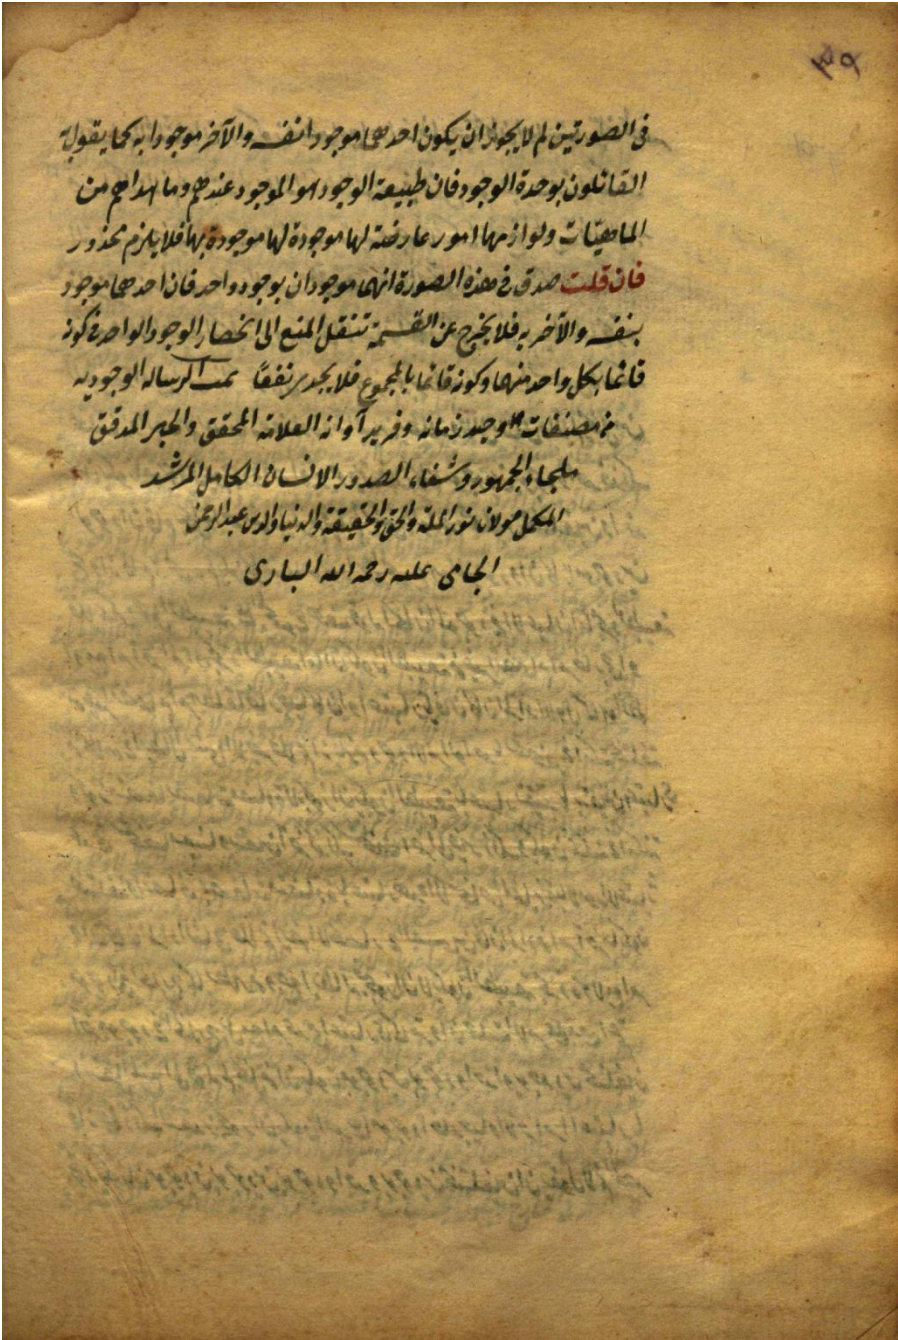 ٣٩
فى الصورتين لم لا يجوز ان يكون احدهما موجودا بنفسه والآخر موجودا به كما يقول به
القائلون بوحدة الوجود فان طبيعة الوجود هو الموجود عندهم وما عداهم من
الماهيّات ولوازمها امور عارضة لها موجودة لها موجودة بها فلا يلزم محذور
فان قلت صدق فى هذه الصورة انهما موجودان بوجود واحد فان احدهما موجود
بنفسه والآخر به فلا يخرج عن القسمة تنقل المنع الى انحصار الوجود الواحد فى كونه
قائما بكل واحد منهما وكونه قائما بالمجموع فلا يجدى نفعًا تمت الرساله الوجوديه
من مصنفات وحيد زمانه وفريد آوانه العلامة المحقق والحبر المدقق
ملجاء الجمهور وشفاء الصدور الانسان الكامل المرشد
المكمل مولانا نور الملة والحق والحقيقة والدنيا والدين عبد الرحمن
الجامى عليه رحمه الله البارى